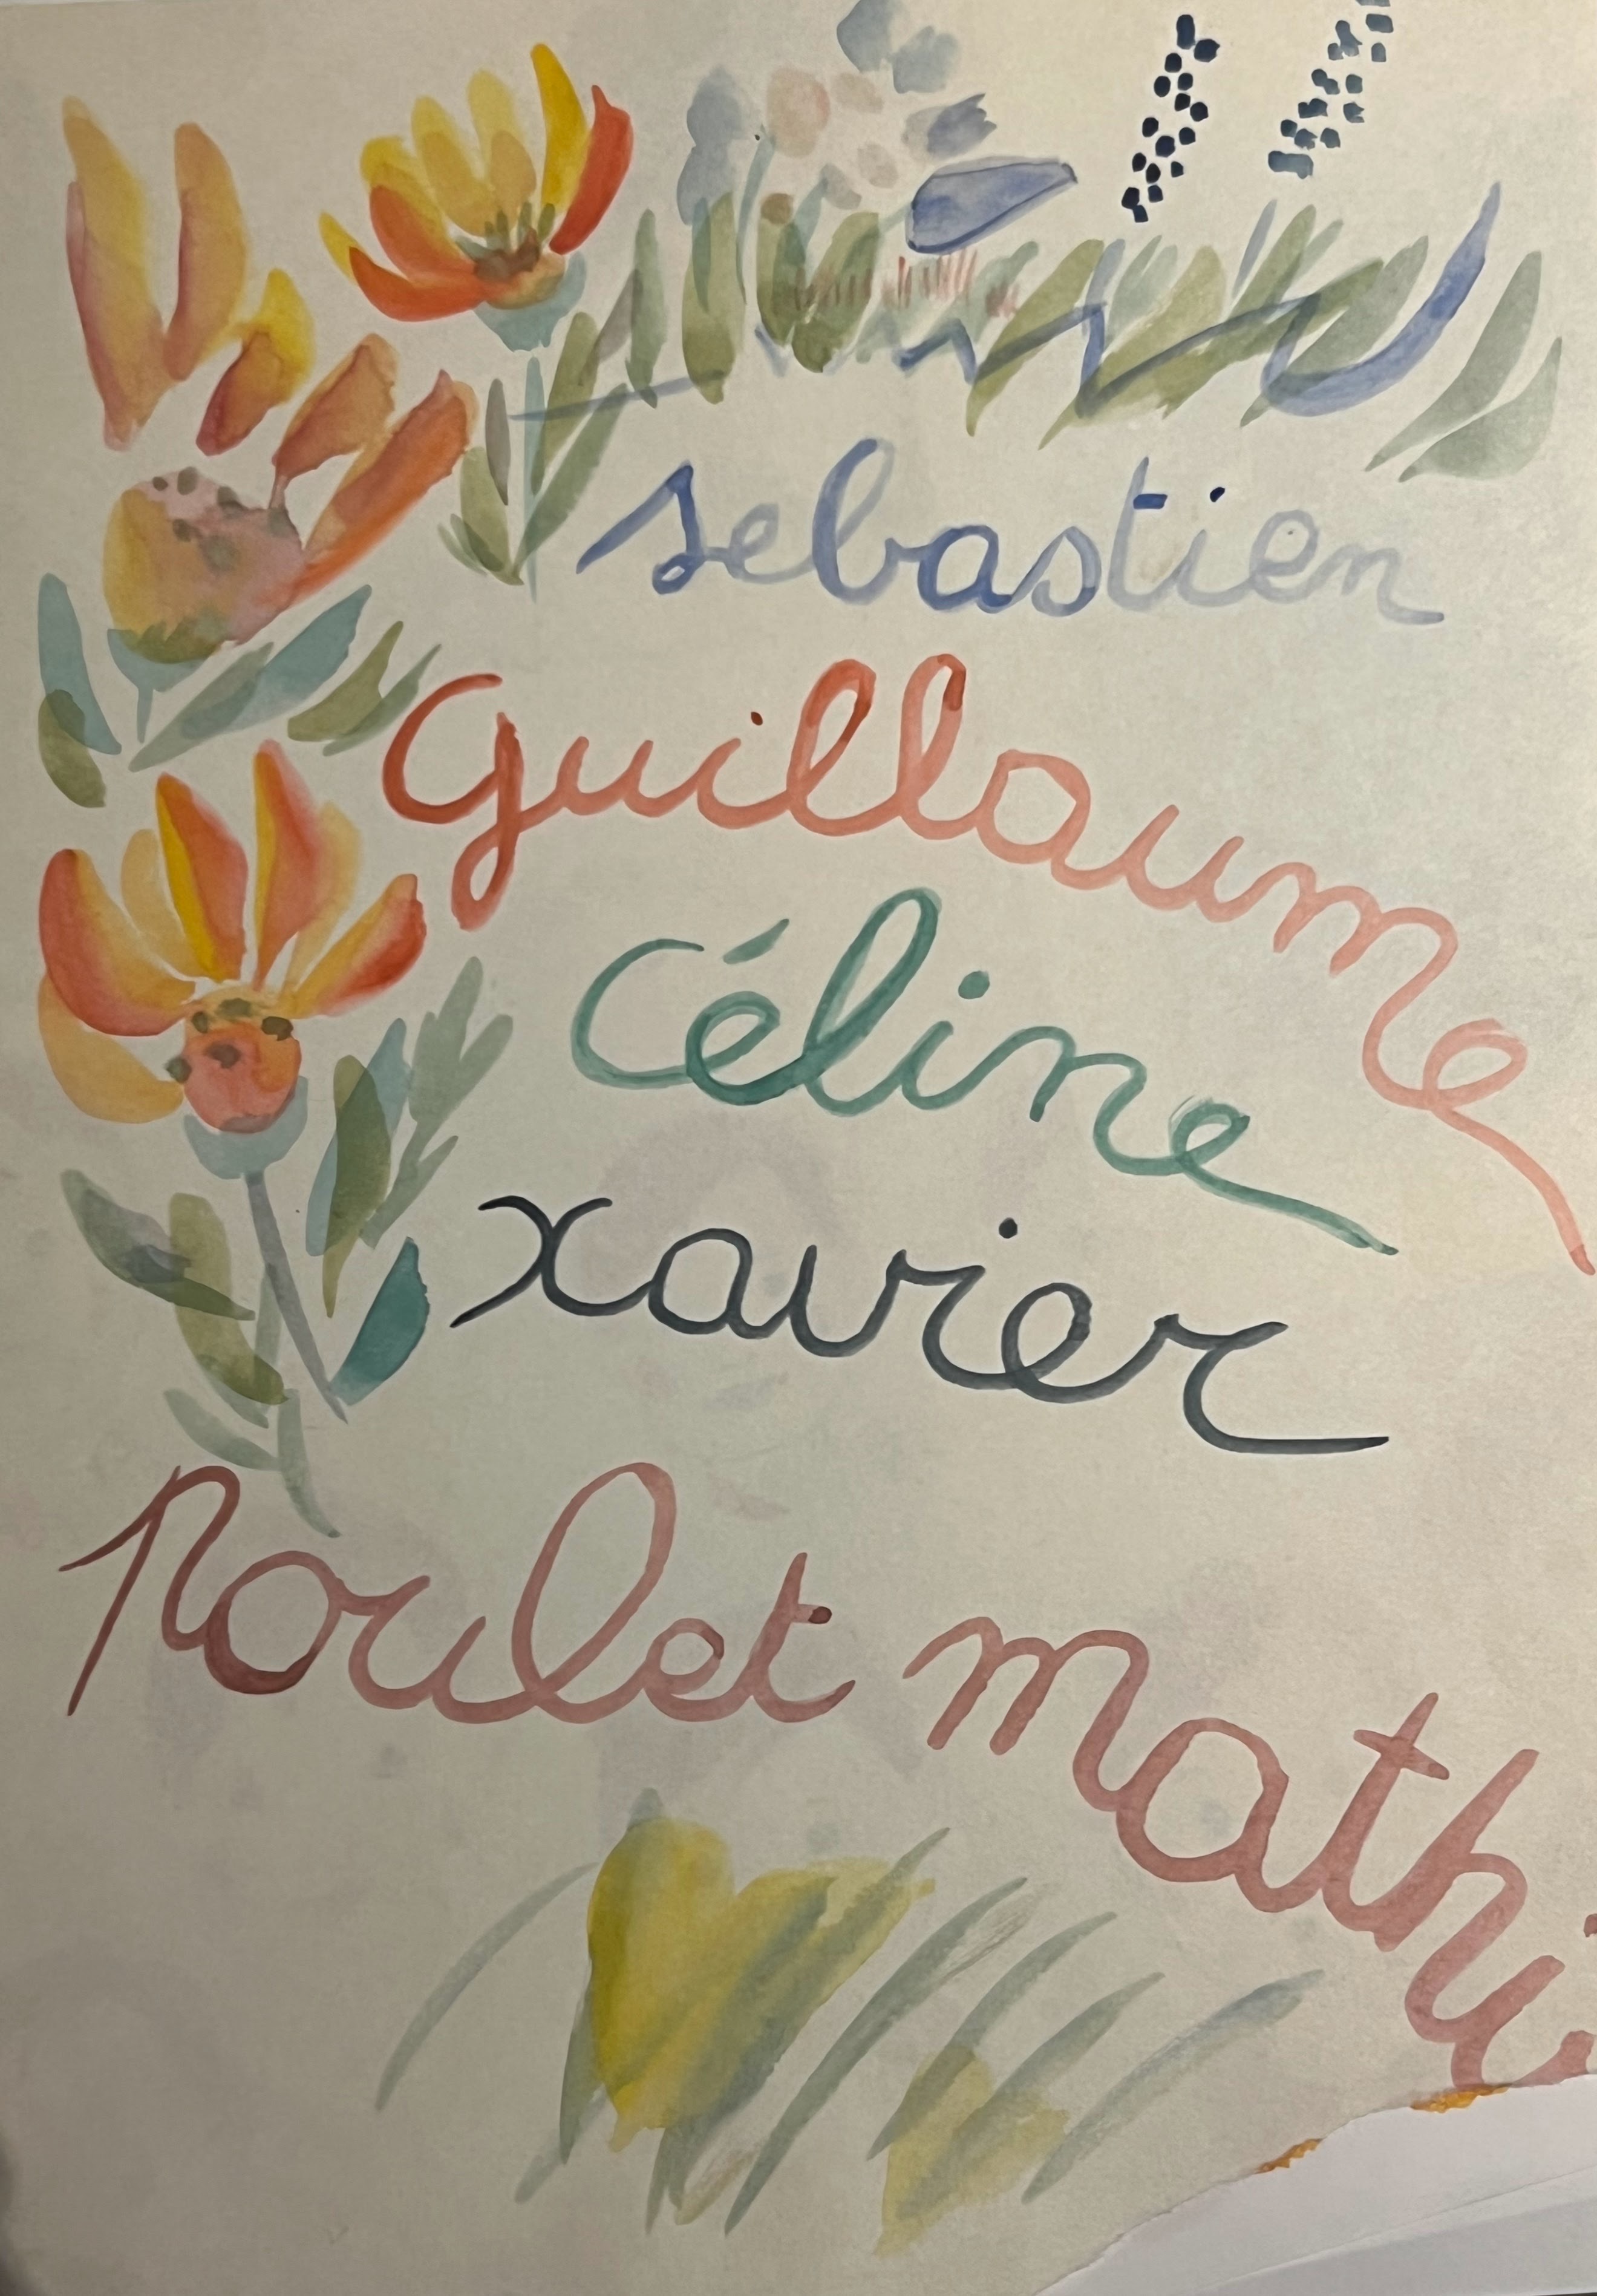 sebastien
Guillaume
Céline
xavier
Poulet